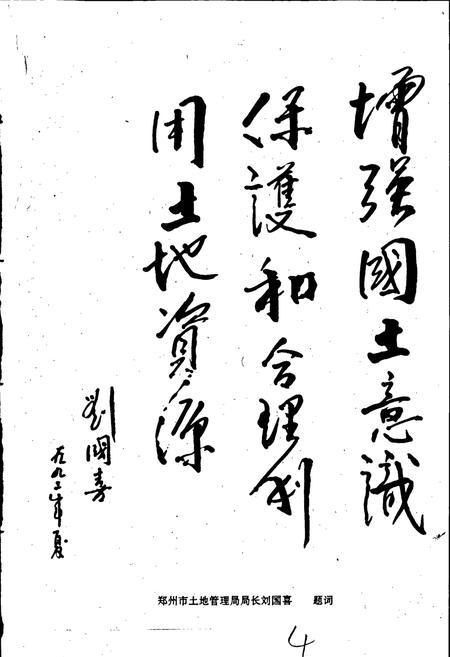 增强國土意識
保護和合理利
用土地資源
劉國喜
一九九二年夏
郑州市土地管理局局长刘国喜 题词
4